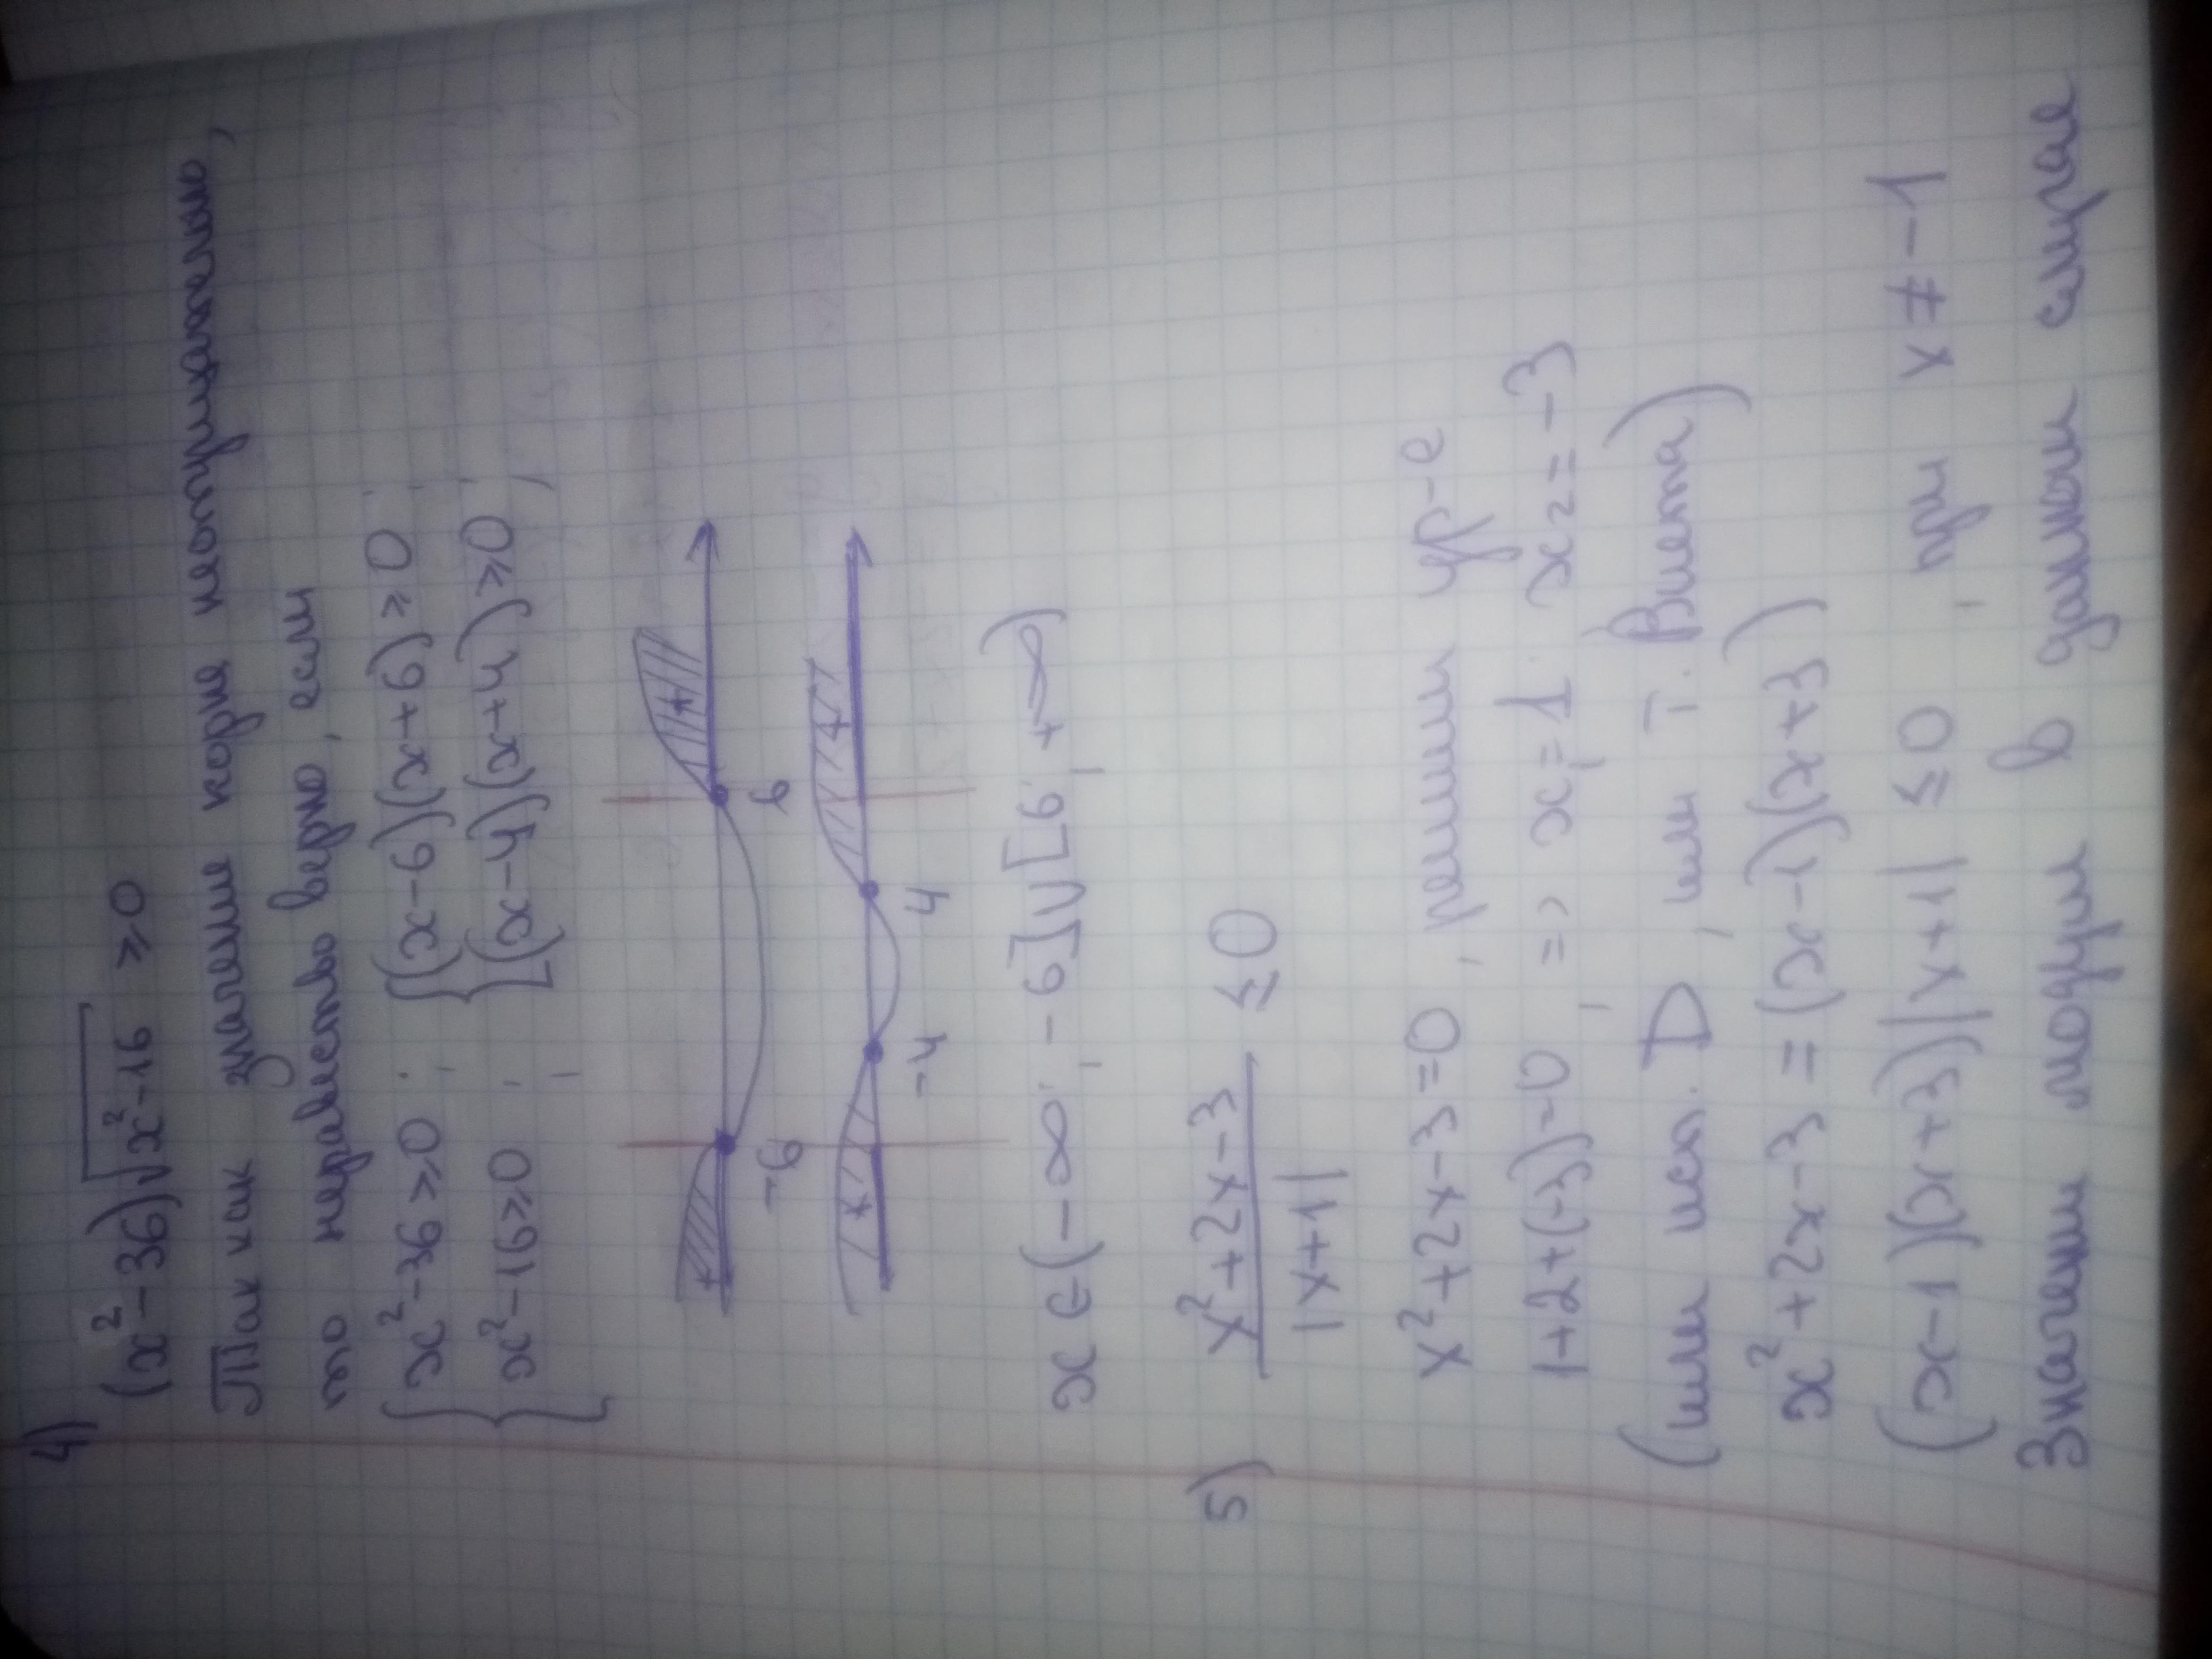 4)
(x²-36)√x²-16 ≥0
Так как значение корня неотрицательно,
то неравенство верно, если
{x²-36≥0 ; {(x-6)(x+6)≥0
{x²-16≥0 ; {(x-4)(x+4)≥0 ;
+ +
-6 6
+ +
-4 4
x∈(-∞; -6]U[6; +∞)
5) x²+2x-3 ≤0
|x+1|
x²+2x-3=0, решим ур-е
1+2+(-3)=0, => x₁=1 x₂=-3
(или исп. D, или т. Виета)
x²+2x-3=(x-1)(x+3)
(x-1)(x+3)|x+1| ≤0, при x≠-1
Значения модуля в данном случае